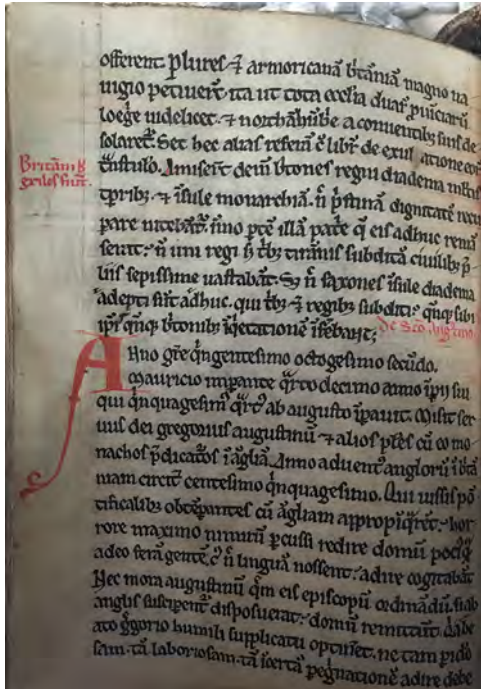 offerent plures ⁊ armoricanā b̓tāniā magno na
uigio petiuer̄t. ita ut tota ecclīa duaꝝ ꝓuīciaꝝ
loeg̓e uidelicet ⁊ northāhūb̓e a conuentibꝫ suis de
solaret̄. Set hec alias referā cū libr̄ de exul atione eoꝝ
Britāni ẜ
t̓nstulo. Amiser̄t deīn b̓tones regni diadema ml̄tis
t̄pribꝫ ⁊ īsule monarchiā. n̄ p̓stinā dignitatē recu
pare nitebāt̄. īmo ꝑtē illā pat̓e q̄ eis adhuc remā
serat. n̄ uni regi ẜꝫ t̓bꝫ tirānis subditā ciuilibꝫ p̄
liis sepissime uastabāt. Sꝫ n̄ saxones īsule diadema
adepti sūt adhuc. qui t̓bꝫ ⁊ regibꝫ subditi
de Sc̄o Augustino
ip̄i qn̄qꝫ b̓tonibꝫ īq̄etationē īferebāt;
Anno gr̄e qīngentesimo octogesimo sec̄do.
Mauricio imꝑante q̄rto decimo anno īꝑii sui
qui qīnquagesim̄ q̄rt̓ ab augusto īꝑauit. Misit ser
uus dei gregorius augustinū ⁊ alios pl̄es cū eo mo
nachos p̄dicat̓os ī āgliā. Anno aduent̓ angloꝝ ī b̓tā
niam circit̓ centesimo qīnquagesimo. Qui iussis pō
tificalibꝫ obtēꝑantes cū āgliam appropīq̄rēt. hor
rore maximo nimirū ꝑcussi redire domū pociꝰ qꝫ
adeo ferā gentē. cꝰ n̄ linguā nossent. adire cogitabāt
Nec mora augustinū q̄m eis episcopū ordinādū. si ab
anglis susciꝑent̓ disposuerat. domū remittūt. q̄ a be
ato g̓gorio humili supplicatu optinēt. ne tam ꝑic̄lo
sam. tā laboriosam. tā īcertā ꝑeg̓nationē adire debe